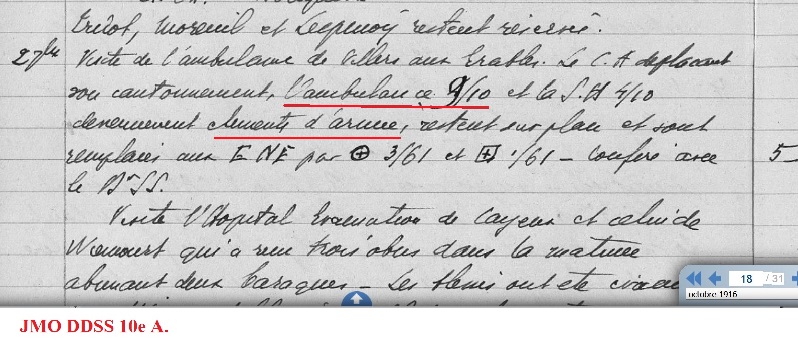 Moreuil et restent réservé.
27bre Visite de l'ambulance de Villers aux Erables. Le C.A. deplacant
son cantonnement, l'ambulance 9/10 et la S.H 4/10
deviennent elements d'armee, restent sur place et sont
remplacés aux E N E par 3/61 et 1/61 – Conféré avec 5
le
Visite l'Hopital Evacuation de Cayeux et celui de
qui a recu trois obus dans la matinée
deux baraques – Les blessés ont été
18 / 31
octobre 1916
JMO DDSS 10e A.